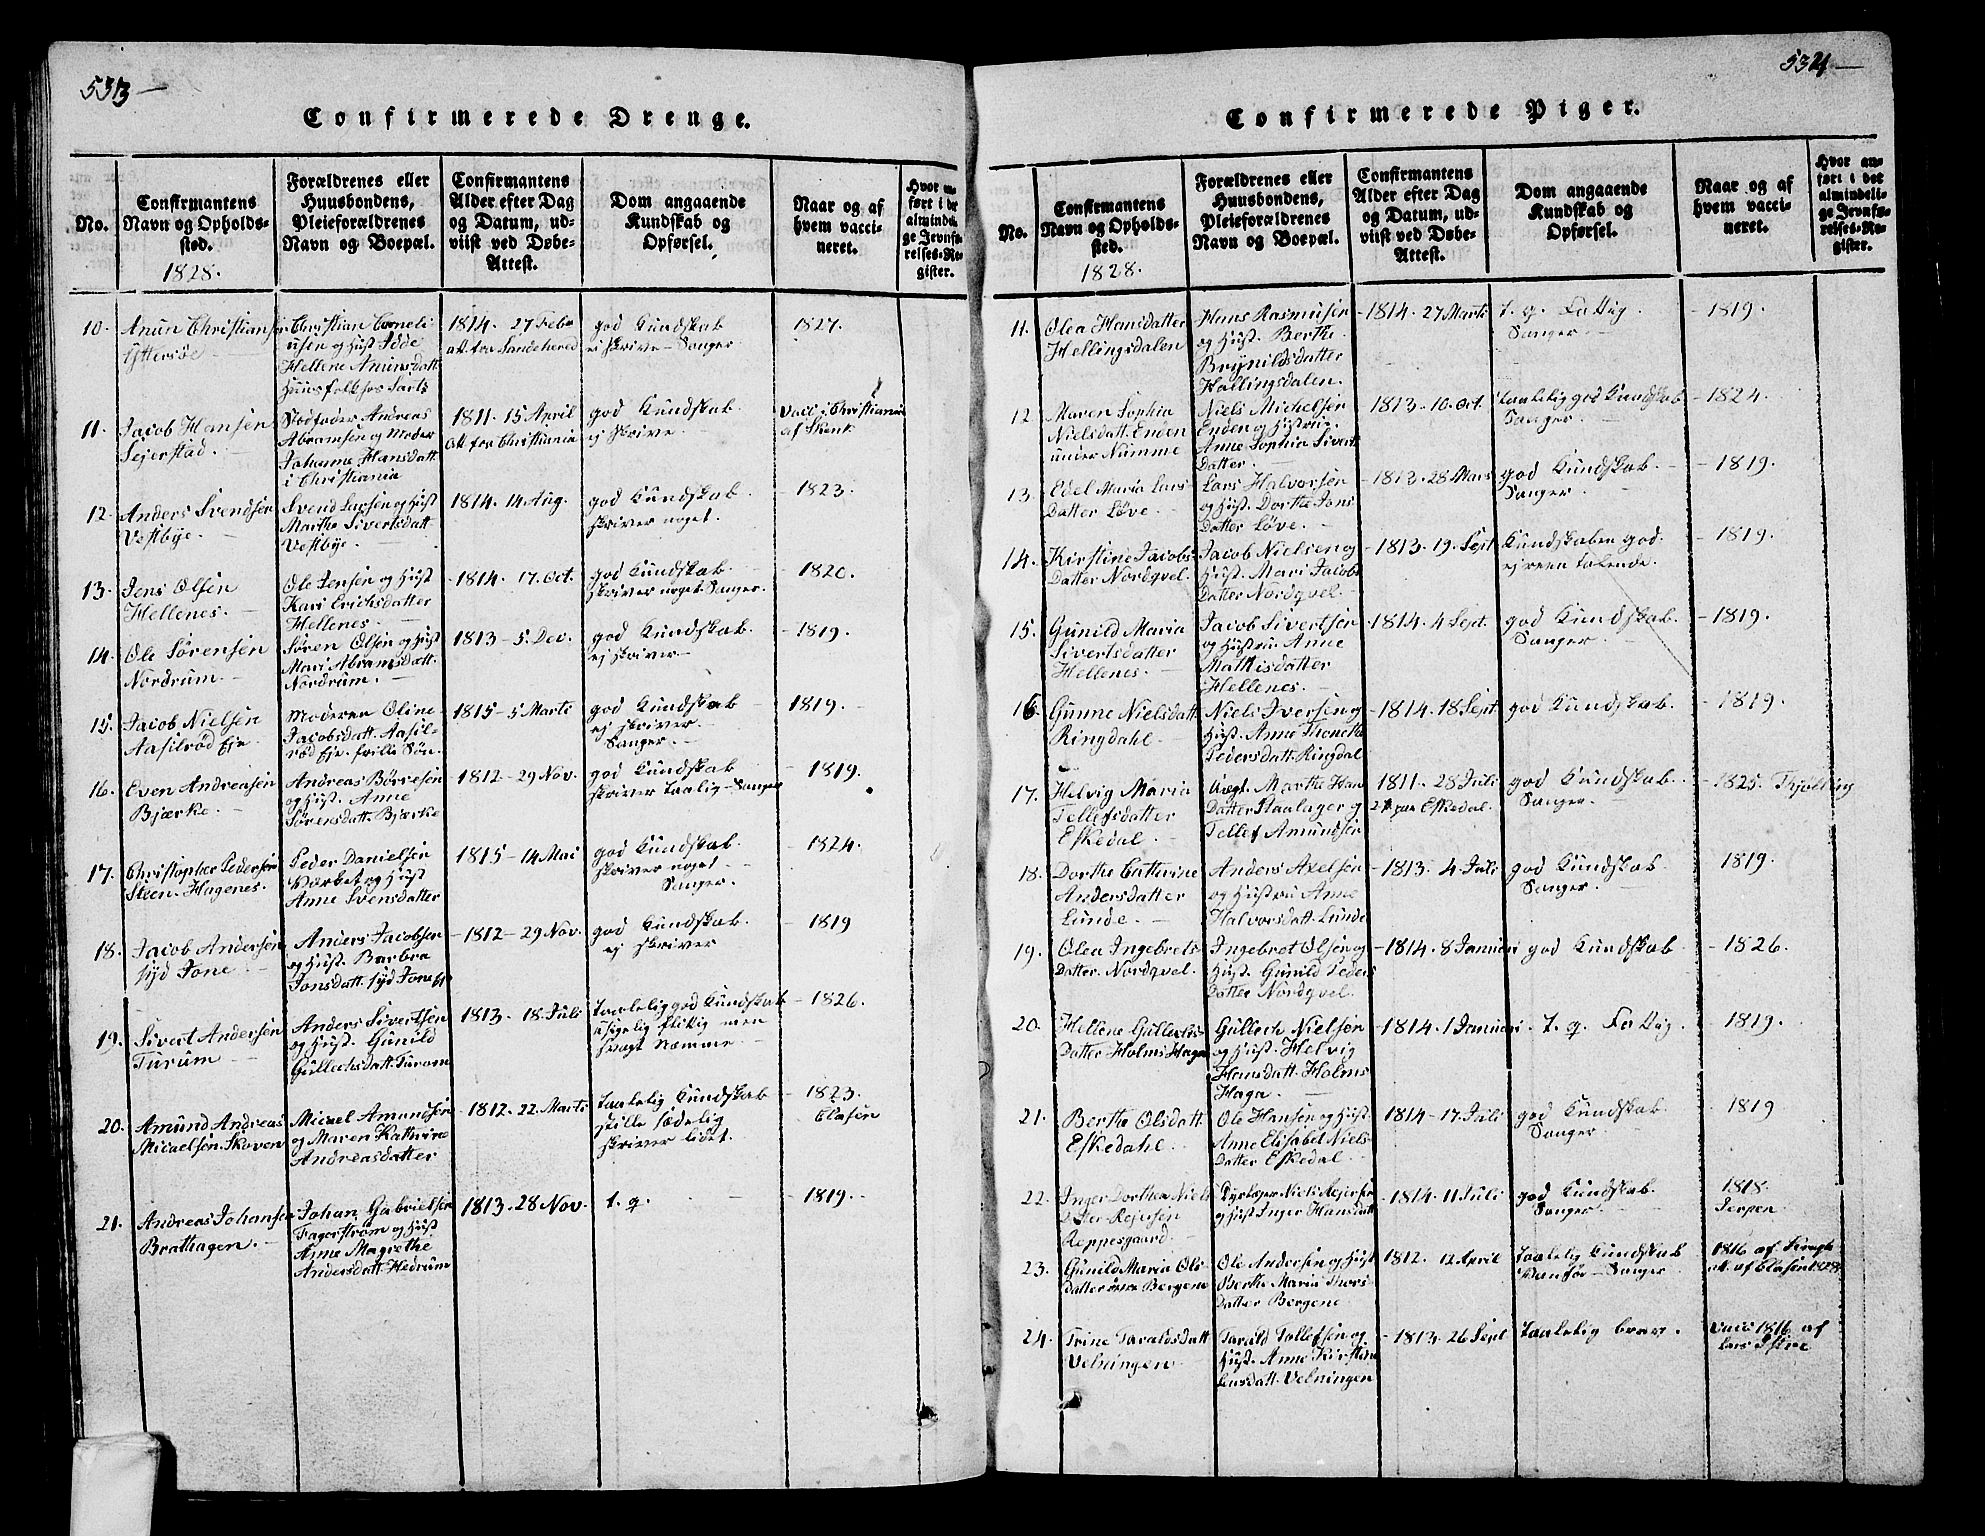 533 —
Confirmerede Drenge.
No.
Confirmantens
Navn og Opholds-
sted.
1828.
Forældrenes eller
Huusbondens,
Pleieforældrenes
Navn og Boepæl.
Confirmantens
Alder efter Dag
og Datum, ud-
viist ved Døbe-
Attest.
Dom angaaende
Kundskab og
Opførsel.
Naar og af
hvem vacci-
neret.
Hvor an-
ført i det
almindeli-
ge Jevnfø-
relses-Re-
gister.
10.
Anun Christiansen
Yttersøe
Christian Corneli-
usen og Hust Idde
Hellene Aminsdatt.
Huusfolk hos
1814. 27 Febr
att. fra Sandehered
god Kundskab
ej skrive - Sanger
1827.
11.
Jacob Hansen
Sejerstad.
Stedfader Andreas
Abramsen og Moder
Johanne Hansdatt
i Christiania
1811. 15 April
att. fra Christiania
god Kundskab
ej skrive.
Vacc. i Christiania
af Skenk
12.
Anders Svendsen
Vestbye.
Svend Larsen og Hust
Marthe Sivertsdatt.
Vestbye.
1814. 14 Aug.
god Kundskab.
skriver noget.
1823.
13.
Jens Olsen
Hellenes.
Ole Jensen og Hust
Kari Erichsdatter
Hellenes.
1814. 17. Oct.
god Kundskab.
skriver noget. Sanger.
1820.
14.
Ole Sørensen
Nordrum.
Søren Olsen og Hust
Mari Abramsdatt.
Nordrum.
1813 - 5. Dec.
god Kundskab.
ej skriver
1819.
15.
Jacob Nielsen
Aasilrød Eje.
Moderen Oline
Jacobsdatt. Aasil-
rød Eje. frille Søn
1815 - 5 Marts
god Kundskab
ej skriver.
Sanger.
1819.
16.
Even Andreasen
Bjerke.
Andreas Børresen
og Hust. Anne
Sørensdatt. Bjerke
1812 - 29 Nov.
god Kundskab
skriver taalig - Sanger
1819.
17.
Christopher Pedersen
Steen. Hagenes.
Peder Danielsen
og Hust
Anne Svensdatter
1815 - 14 Mai
god Kundskab.
skriver noget
Sanger.
1824.
18.
Jacob Andersen
Syd Fone.
Anders Jacobsen
og Hust. Barbra
Jonsdatt. Syd Fone
1812 - 29 Nov.
god Kundskab.
ej skriver
1819
19.
Sivert Andersen
Turum
Anders Sivertsen
og Hust. Gunild
Gullechsdatt. Turom
1813. 18. Juli
taalelig god Kundskab
usigelig flitig men
svagt Nemme
1826.
20.
Amund Andreas
Micaelsen. Skoven
Micael Amundsen
og Maren Kathrine
Andreasdatter
1812. 22. Marts
taalelig Kundskab
stille sædelig
skriver lidet.
1823.
Clasen
21.
Andreas Johansen
Brathagen.
Johan Gabrielsen
Fagerstrøm og Hust
Anne Magrethe
Andersdatt. Hedrum
1813. 28 Nov.
t. g.
1819.
534 —
Confirmerede Piger.
No.
Confirmantens
Navn og Opholds-
sted.
1828.
Forældrenes eller
Huusbondens,
Pleieforældrenes
Navn og Boepæl.
Confirmantens
Alder efter Dag
og Datum, ud-
viist ved Døbe-
Attest.
Dom angaaende
Kundskab og
Opførsel.
Naar og af
hvem vacci-
neret.
Hvor an-
ført i det
almindeli-
ge Jevnfø-
relses-Re-
gister.
11.
Olea Hansdatter
Hellingsdalen
Hans Rasmusen
og Hust. Berthe
Brynildsdatter
Hallingsdalen.
1814. 27 Marts
t. g. Fattig.
Sanger.
1819.
12
Maren Sophia
Nielsdatt. Enden
under Numme
Niels Michelsen
Enden og Hustrue.
Anne Sophia Siverts
Datter.
1813 - 10. Oct.
taalelig god Kundskab
Sanger.
1824.
13.
Edel Maria Lars
Datter Løve.
Lars Halvorsen
og Hust. Dorthe Jons
Datter Løve.
1813 - 28 Mars
god Kundskab.
Sanger.
1819.
14.
Kirstine Jacobs
Datter Nordqvel.
Jacob Nielsen og
Hust. Mari Jacobs
Datter Nordqvel.
1813. 19. Sept
Kundskaben god.
ej reen talende.
1819.
15.
Gunild Maria
Sivertsdatter
Hellenes.
Jacob Sivertsen
og Hustru Anne
Mathisdatter
Hellenes.
1814. 4 Sept.
god Kundskab.
Sanger.
1819.
16.
Gunne Nielsdatt.
Ringdahl
Niels Iversen og
Hust. Anne Thonette
Pedersdatt. Ringdal
1814. 18 Sept.
god Kundskab.
1819.
17.
Helvig Maria
Tellefsdatter
Eskedal.
Marthe Han
Datter Staalager og
Tellef Amundsen
1811. 28 Juli
paa Eskedal.
god Kundskab.
Sanger.
1825. Thjølling
18.
Dorthe Cathrine
Andersdatter
Lunde.
Anders Axelsen
og Hustru Anne
Halvorsdatt. Lunde
1813. 4 Juli
god Kundskab.
Sanger.
1819.
19.
Olea Ingebrets
Datter. Nordqvel.
Ingebret Olsen og
Hust. Gunild Peders
Datter Nordqvel.
1814. 8 Januari
god Kundskab
1826.
20.
Hellene Gullechs
Datter Holms Haga
Gullech Nielsen
og Hust. Helvig
Hansdatt. Holms
Haga.
1814. 1 Januari
t. g. Fattig.
1819.
21.
Berthe Olsdatt.
Eskedahl.
Ole Hansen og Hust.
Anne Elisabet Niels
Datter Eskedal.
1814 - 17. Juli
god Kundskab.
Sanger
1819
22.
Inger Dorthea Niels
Datter Rejersen
Reppesgaard.
Niels Rejersen
og Hust Inger Hansdatt
1814. 11 Juli
god Kundskab.
Sanger.
1818.
23.
Gunild Maria Ols
datter øvre Bergene
Ole Andersen og Hust
Berthe Maria Thors
Datter Bergene
1812. 12 April
taalelig Kundskab
Sanger.
1816 af
att. af Clasen 1828.
24.
Trine Taraldsdatt
Velningen
Tarald Tollefsen og
Hust. Anne Kirstine
Velningen
1813. 26 Sept
taalelig brav.
Vacc. 1816. af
Lars Istre